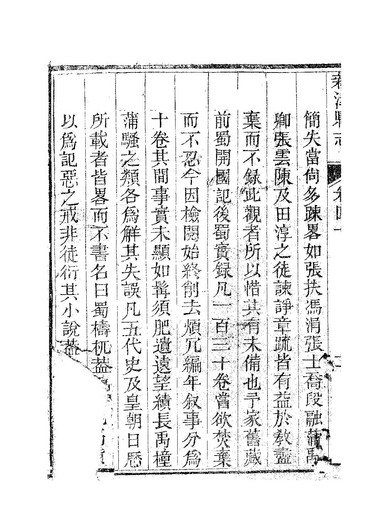 縣志
卷四十
簡失當尙多踈畧如張扶馮涓張士喬段融蒲禹
卿張雲陳及田淳之徒諫諍章疏皆有益於教盡
棄而不錄此觀者所以惜其有未備也予家舊藏
前蜀開國記後蜀實録凡一百三十卷嘗欲焚棄
而不忍今因檢閱始終削去煩冗編年叙事分爲
十卷其間事實未顯如髯須肥遺遠望績長禹橦
蒲騷之類各為解其失誤凡五代史及皇朝日厯
所載者皆畧而不書名曰蜀檮杌蓋
以爲記惡之戒非徒衍其小說蓋